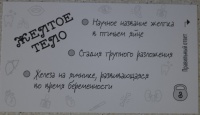 ЖЕЛТОЕ
ТЕЛО
Научное название желтка
в птичьем яйце
Стадия трупного разложения
Железа на яичнике, развивающаяся
во время беременности
Правильный ответ